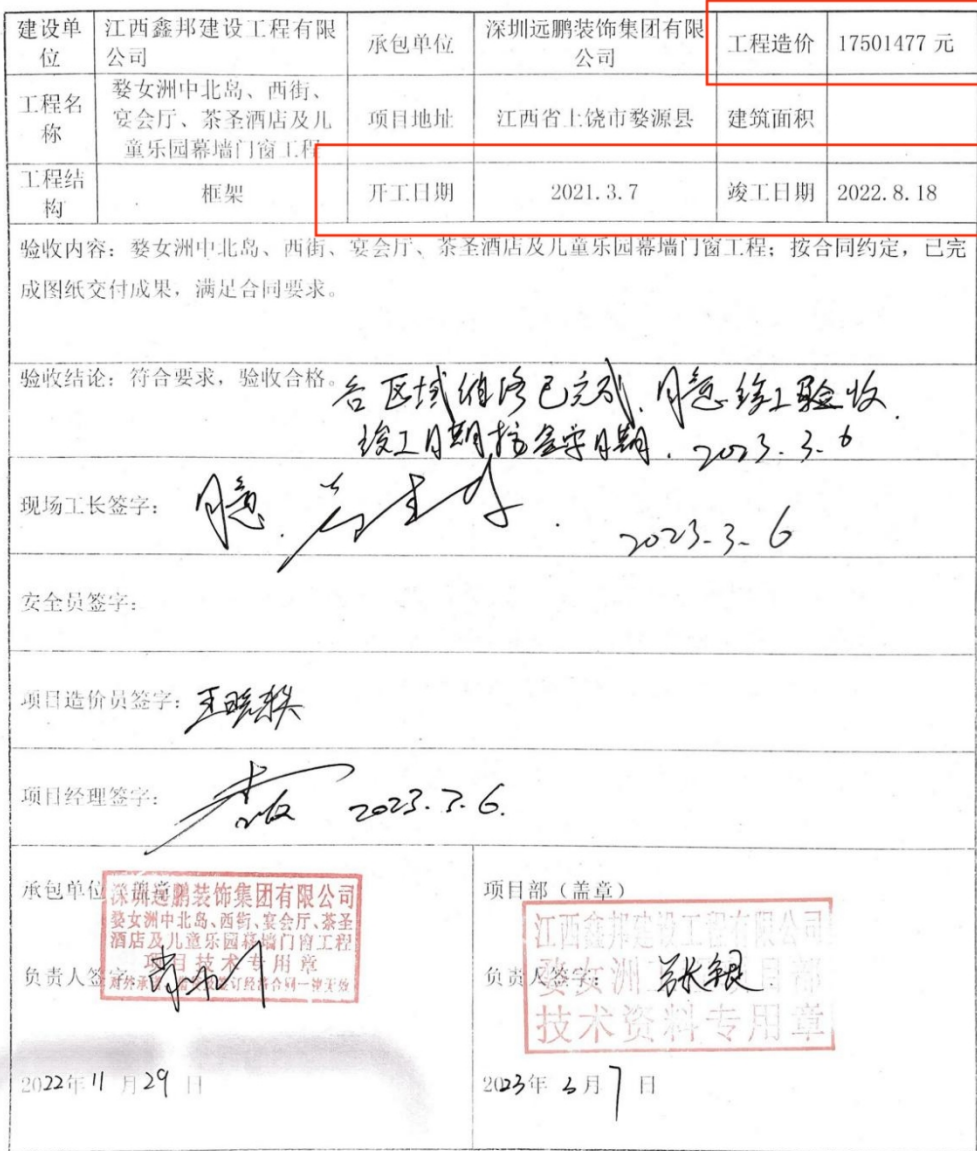 建设单位 江西鑫邦建设工程有限公司 承包单位 深圳远鹏装饰集团有限公司 工程造价 17501477 元
工程名称 婺女洲中北岛、西街、宴会厅、茶圣酒店及儿童乐园幕墙门窗工程 项目地址 江西省上饶市婺源县 建筑面积
工程结构 框架 开工日期 2021.3.7 竣工日期 2022.8.18
验收内容：婺女洲中北岛、西街、宴会厅、茶圣酒店及儿童乐园幕墙门窗工程；按合同约定，已完
成图纸交付成果，满足合同要求。
验收结论：符合要求，验收合格。
各区域维修已完成、同意竣工验收.
竣工日期按签字日期. 2023.3.6
现场工长签字：同意.
2023.3.6
安全员签字：
项目造价员签字：
项目经理签字：2023.3.6.
承包单位（盖章）
深圳远鹏装饰集团有限公司
婺女洲中北岛、西街、宴会厅、茶圣
酒店及儿童乐园幕墙门窗工程
项目技术专用章
负责人签字：
2022年11月29日
项目部（盖章）
江西鑫邦建设工程有限公司
婺女洲 项目部
技术资料专用章
负责人签字：张银
2023年3月7日